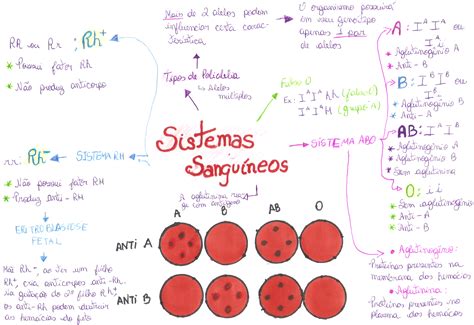 RR ou Rr : Rh+
* Possui fator RH
* Não produz anticorpo
Mais de 2 alelos podem
influenciar certa carac-
terística
O organismo possuirá
em seu genótipo
apenas 1 par
de alelos
Tipos de Polialelia
↳ Alelos
múltiplos
Falso O
Ex: I^A I^A hh (falso O)
I^A I^A H (grupo A)
A : I^A I^A ou
I^A i
* Aglutinogênio A
* Anti - B
B : I^B I^B ou
I^B i
* Aglutinogênio B
* Anti - A
AB: I^A I^B
* Aglutinogênio A
* Aglutinogênio B
* Sem aglutinina
O : i i
* Sem aglutinogênio
* Anti - A
* Anti - B
Sistemas
Sanguíneos
SISTEMA ABO
SISTEMA RH
rr: Rh-
* Não possui fator RH
* Produz anti-RH
ERITROBLASTOSE
FETAL
Mãe Rh-, ao ter um filho
Rh+, cria anticorpos anti-Rh.
Na gestação do 2º filho Rh+
os anti-Rh podem destruir
as hemácias do feto
A aglutinina rea-
ge com antígeno
A B AB O
ANTI A
ANTI B
* Aglutinogênio:
Proteínas presentes na
membrana das hemácias
* Aglutinina:
Proteínas presentes no
plasma das hemácias